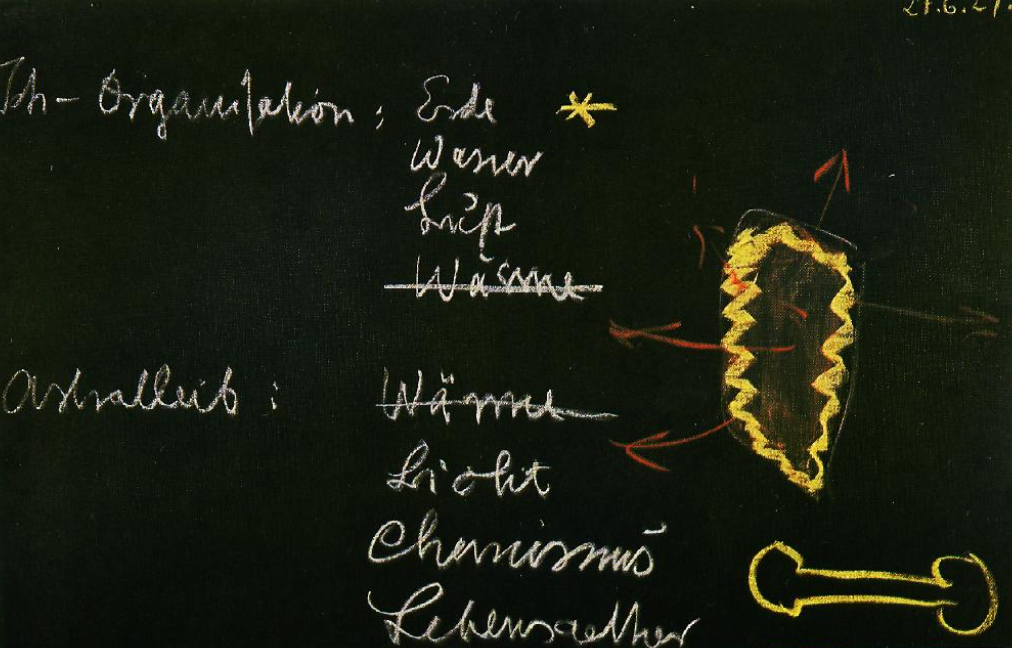 Ich-Organisation: Erde
Wasser
Luft
Wärme
Astralleib: Wärme
Licht
Chemismus
Lebensaether